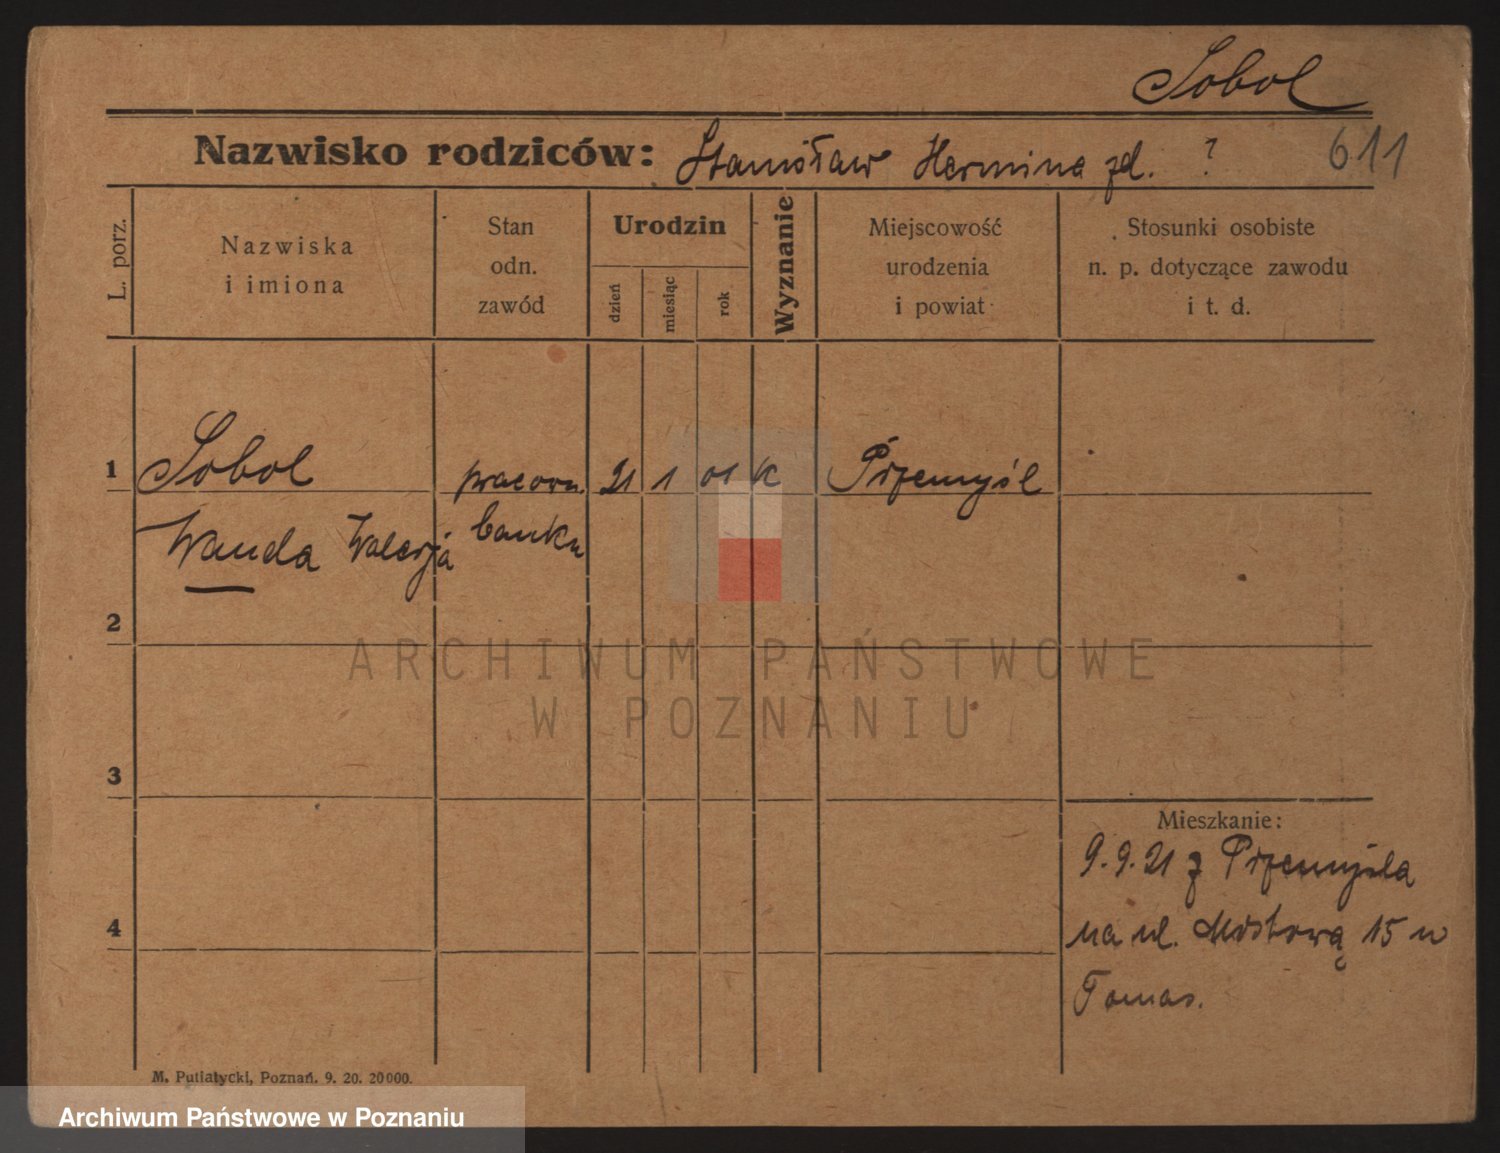 Sobol
Nazwisko rodziców: Stanisław Hermina zd. ? 611
L. porz.
Nazwiska
i imiona
Stan
odn.
zawód
Urodzin
dzień
miesiąc
rok
Wyznanie
Miejscowość
urodzenia
i powiat
Stosunki osobiste
n. p. dotyczące zawodu
i t. d.
1 Sobol pracown. 21 1 01 K Przemyśl
Wanda Walerja banku
2
ARCHIWUM PAŃSTWOWE
W POZNANIU
3
Mieszkanie:
9.9.21 z Przemyśla
4
na ul. Mostową 15 u
Tomas.
M. Putiatycki, Poznań. 9. 20. 20000.
Archiwum Państwowe w Poznaniu